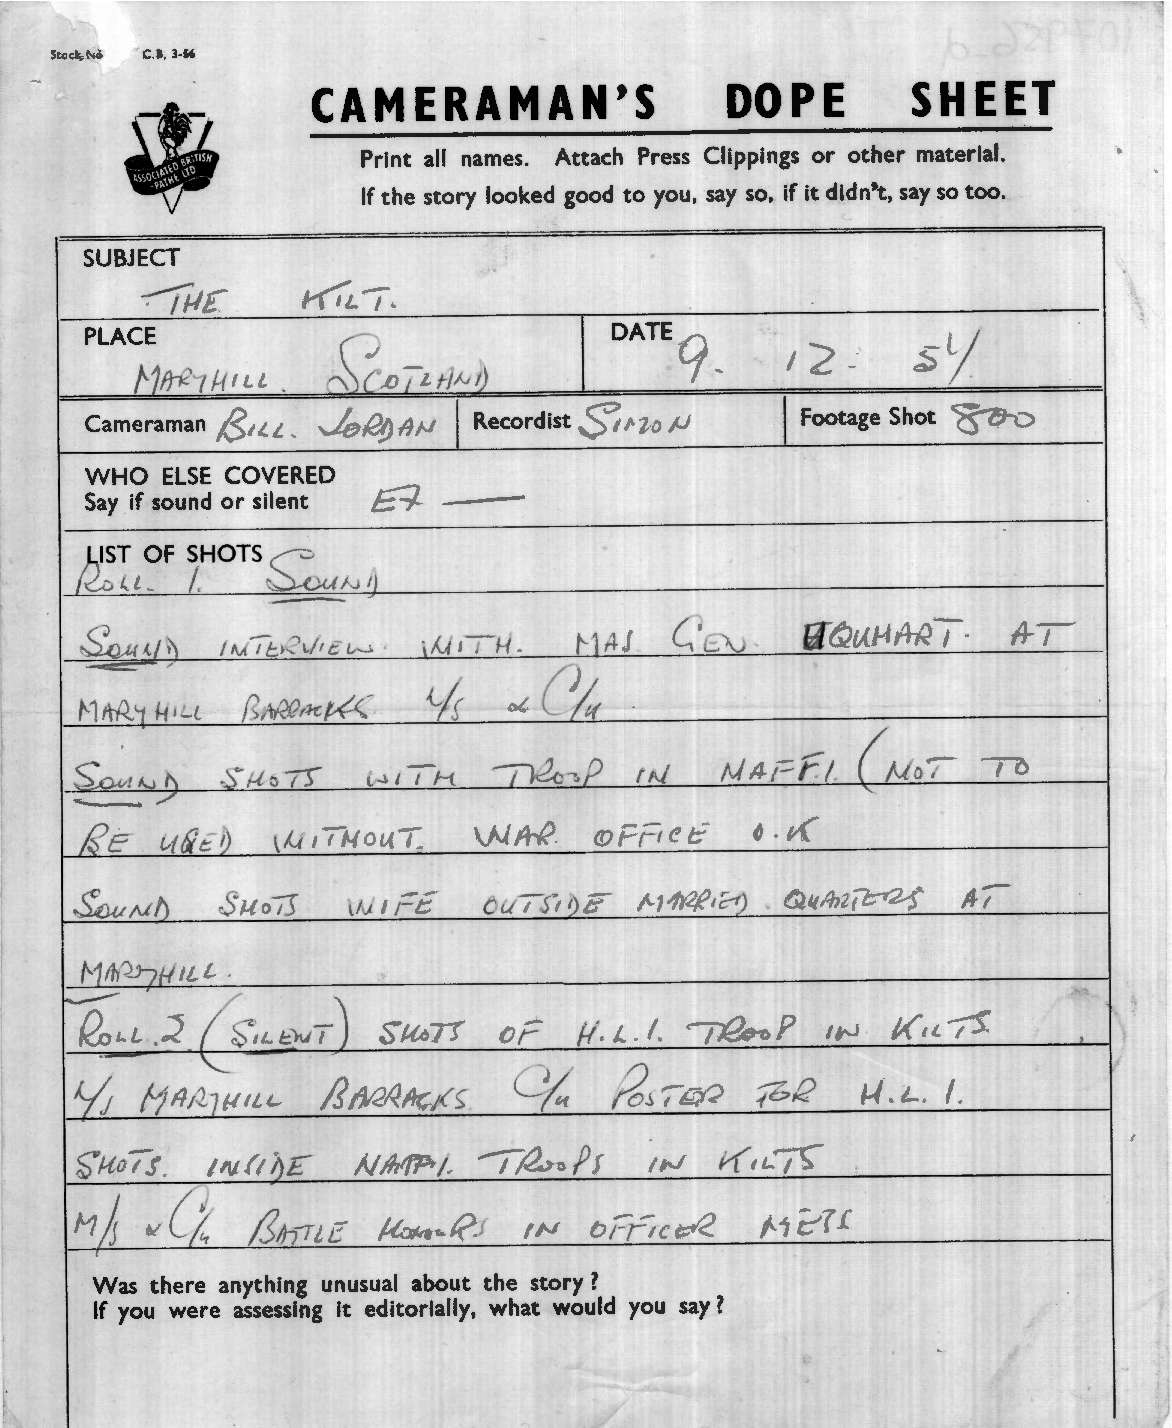 Stock No C.B. 3-56
CAMERAMAN'S DOPE SHEET
Print all names. Attach Press Clippings or other material.
If the story looked good to you, say so, if it didn't, say so too.
ASSOCIATED BRITISH
-PATHE LTD
SUBJECT
THE KILT.
PLACE
MARYHILL. SCOTLAND
DATE
9. 12.
Cameraman BILL. JORDAN
Recordist SIMON
Footage Shot 800
WHO ELSE COVERED
Say if sound or silent EX —
LIST OF SHOTS
ROLL. 1. SOUND
SOUND INTERVIEW WITH. MAJ GEN. UQUHART. AT
MARYHILL BARRACKS L/S & C/U.
SOUND SHOTS WITH TROOP IN NAFF.I. (NOT TO
BE USED WITHOUT. WAR. OFFICE O.K
SOUND SHOTS WIFE OUTSIDE MARRIED. QUARTERS AT
MARYHILL.
ROLL.2 (SILENT) SHOTS OF H.L.I. TROOP IN KILTS.
L/S MARYHILL BARRACKS C/U POSTER FOR H.L.I.
SHOTS. INSIDE NAFFI. TROOPS IN KILTS
M/S & C/U BATTLE HONOURS IN OFFICER MESS
Was there anything unusual about the story?
If you were assessing it editorially, what would you say?